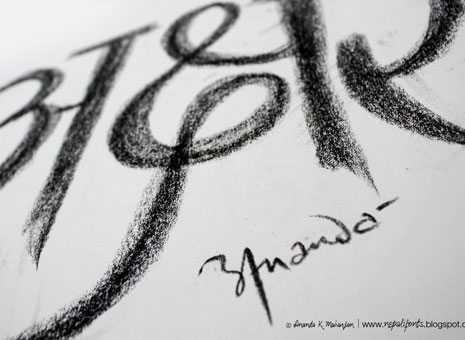 अक्षर
Ananda
© Ananda K. Maharjan | www.nepalifonts.blogspot.c